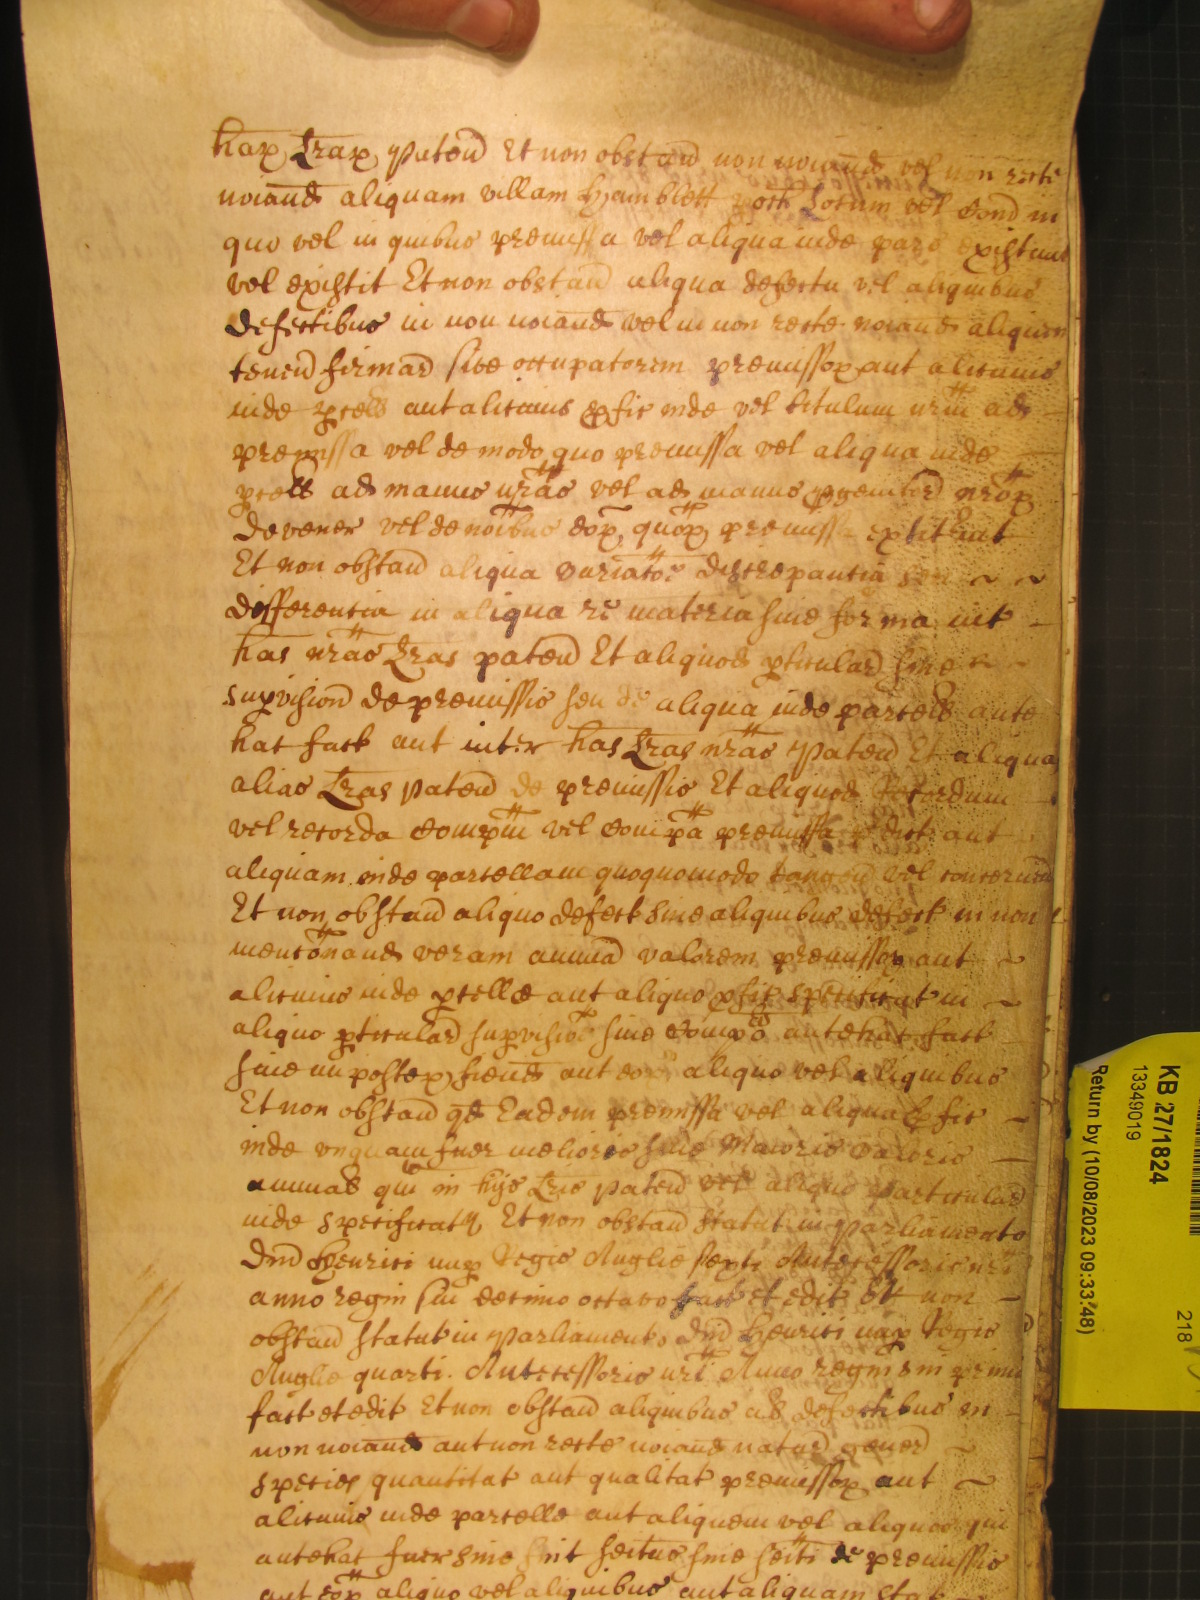 har Lrar Paten Et non obstan non noiand vel non recte
noiand aliquam villam Hamblett poch Locum vel Com in
quo vel in quibus premissa vel aliqua inde pars existunt
vel existit Et non obstan aliqua defectu vel aliquibus
defectibus in non noiand vel in non recte noiand aliquem
tenen firmar sive occupatorem premissor aut alicuius
inde pcell aut alicuius pfic inde vel titulum nrm ad
premissa vel de modo quo premissa vel aliqua inde
pcell ad manus nras vel ad manus pgenitor nror
devener vel de noibus eor quor premissa extiterint
Et non obstan aliqua variacoe discrepantia seu
differentia in aliqua re materia sive forma int
has nras Lras paten Et aliquod pticular sive
supvision de premissis seu de aliqua inde parcell ante
hac fact aut inter has Lras nras Paten Et aliqua
alias Lras Paten de premissis Et aliquod Recordum
vel recorda Compm vel Compa premissa pdict aut
aliquam inde parcellam quoquomodo tangen vel concernen
Et non obstan aliquo defect sive aliquibus defect in non
menconand veram annua valorem premissor aut
alicuius inde pcelle aut aliquo pfic specificat in
aliquo pticular supvisioe sive Compo antehac fact
sive imposter fiend aut eor aliquo vel aliquibus
Et non obstan qd Eadem premissa vel aliqua pfic
inde unquam fuer melioris sive Maioris valoris
annual qm in hijs Lris paten vel aliquo Particular
inde specificatr Et non obstan Statut in Parliamento
Dni Henrici nup Regis Anglie sexti Antecessoris nri
anno regni sui decimo octavo fact et edit Et non
obstan Statut in Parliamento Dni Henrici nup Regis
Anglie quarti Antecessoris nri Anno regni sui primo
fact et edit Et non obstan aliquibus al defectibus in
non noiand aut non recte noiand natur gener
species quantitat aut qualitat premissor aut
alicuius inde parcelle aut aliquem vel aliquos qui
antehac fuer sive sint seitus sive seiti de premissis
aut eor aliquo vel aliquibus aut aliquam Stat
KB 27/1824
13349019
Return by (10/08/2023 09:33:48)
218